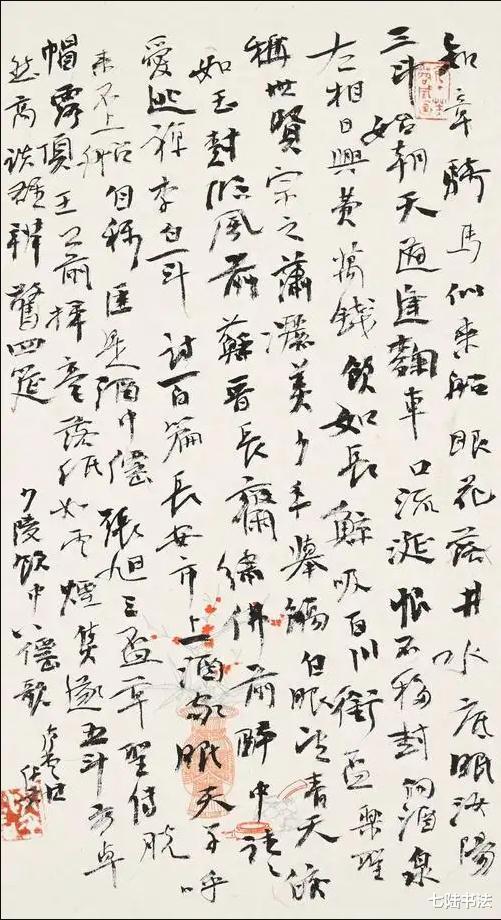 知章騎馬似乘船眼花落井水底眠汝陽
三斗始朝天道逢麴車口流涎恨不移封向酒泉
左相日興費萬錢飲如長鯨吸百川銜盃樂聖
稱世賢宗之瀟灑美少年舉觴白眼望青天皎
如玉樹臨風前蘇晉長齋繡佛前醉中往往
愛逃禪李白一斗詩百篇長安市上酒家眠天子呼
來不上船自稱臣是酒中僊張旭三盃草聖傳脫
帽露頂王公前揮毫落紙如雲煙焦遂五斗方卓
然高談雄辯驚四筵
少陵飲中八僊歌
七陆书法